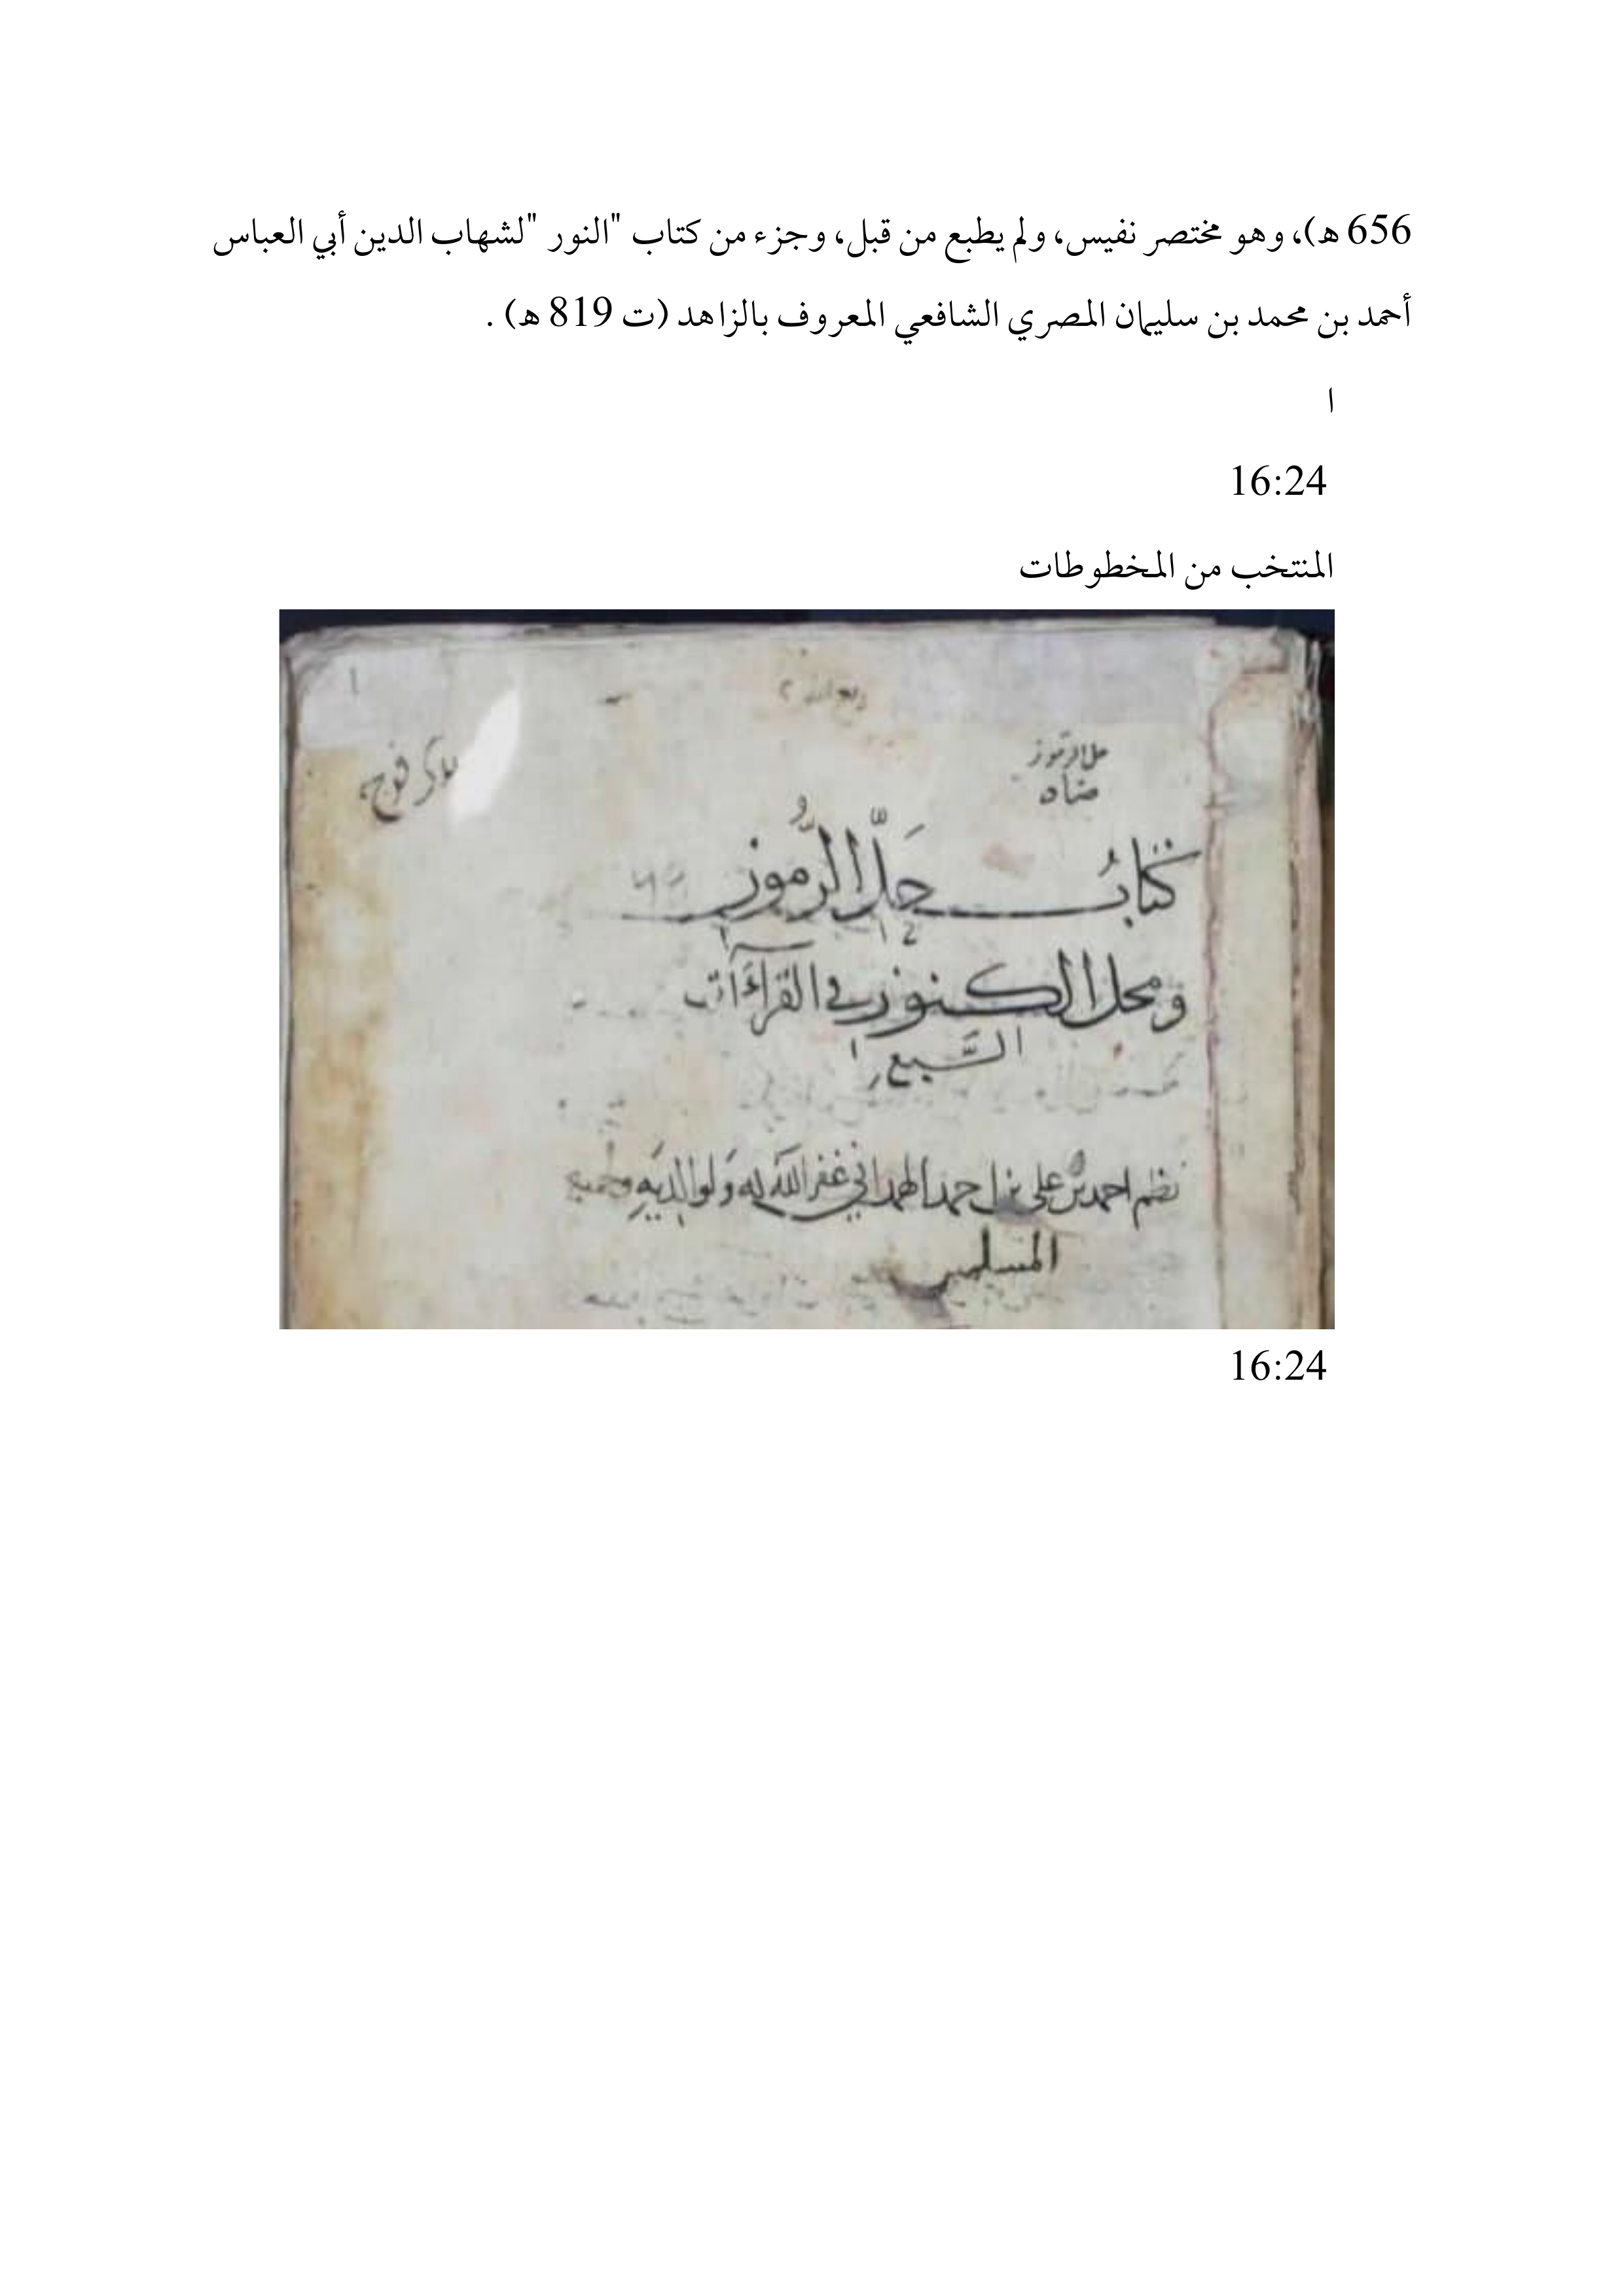 656 هـ)، وهو مختصر نفيس، ولم يطبع من قبل، وجزء من كتاب "النور "لشهاب الدين أبي العباس
أحمد بن محمد بن سليمان المصري الشافعي المعروف بالزاهد (ت 819 هـ) .
ا
16:24
المنتخب من المخطوطات
١
حل الرموز
كتابُ حَلّ الرُّموز
ومحل الكنوز في القراءات
السَّبع
نظم احمد بن علي بن احمد الهمداني غفر الله له ولوالديه وجميع
المسلمين
16:24